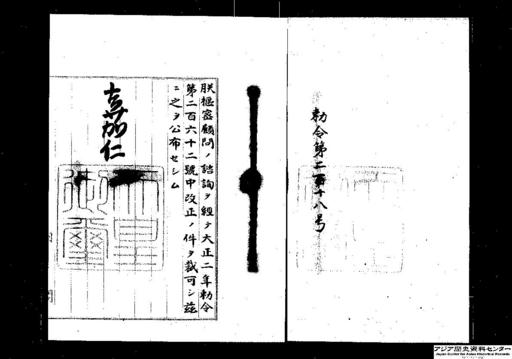 勅令第二百十八号
朕樞密顧問ノ諮詢ヲ經テ大正二年勅令
第二百六十二號中改正ノ件ヲ裁可シ茲
ニ之ヲ公布セシム
嘉仁
アジア歴史資料センター
Japan Center for Asian Historical Records